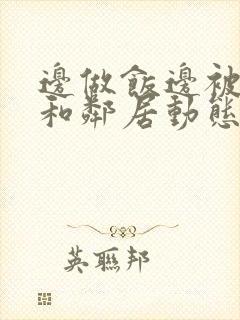 邊做飯邊被
和鄰居動態
英聯邦